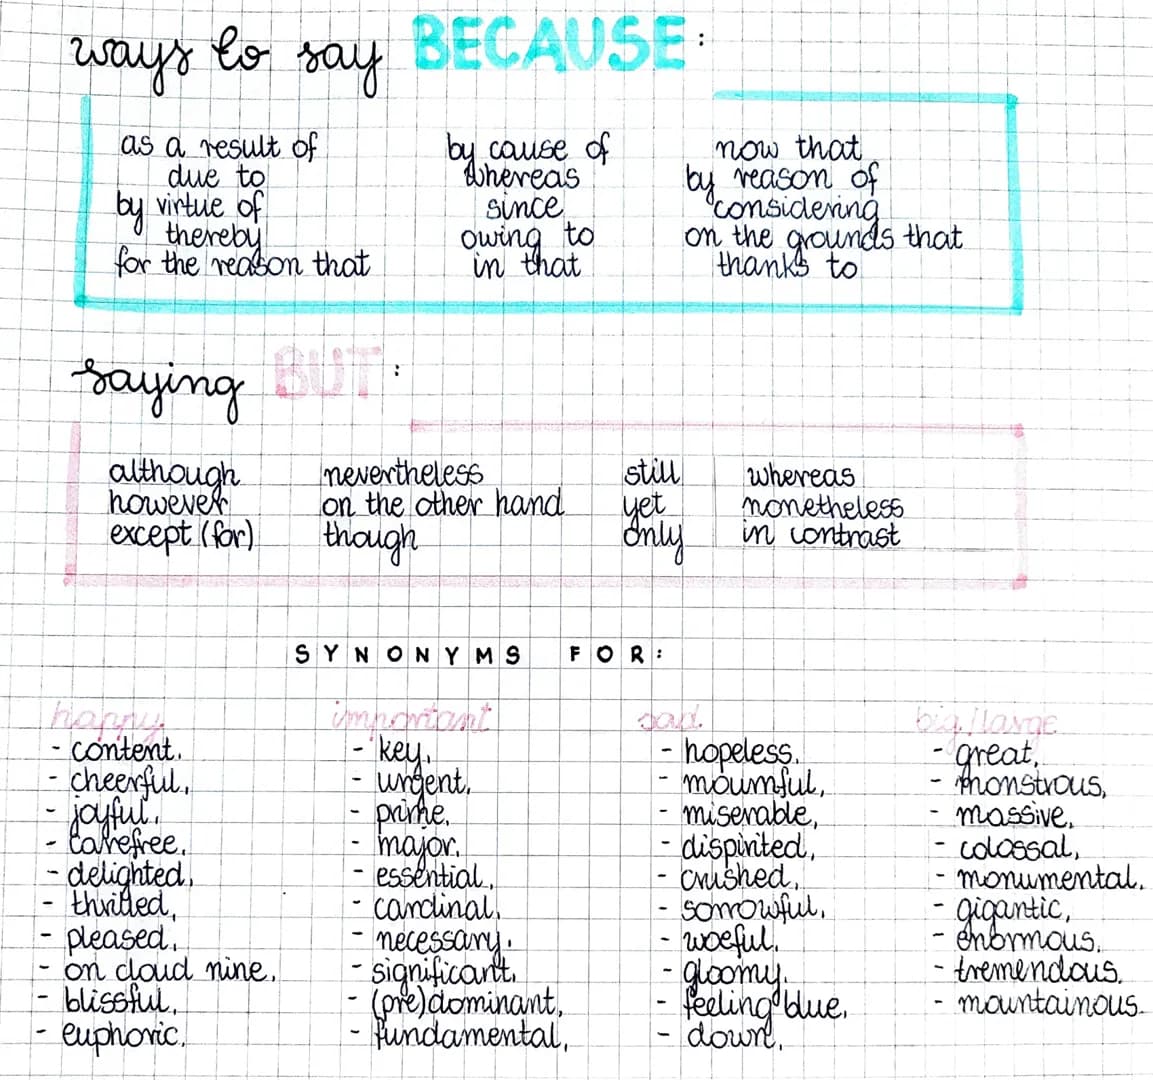 ways to say BECAUSE:
as a result of
due to
by virtue of
thereby
for the reason that
by cause of
whereas
since
owing to
in that
now that
by reason of
considering
on the grounds that
thanks to
saying BUT:
although
however
except (for)
nevertheless
on the other hand
though
still
yet
only
whereas
nonetheless
in contrast
SYNONYMS FOR:
happy
- content,
- cheerful,
- joyful,
- carefree,
- delighted,
- thrilled,
- pleased,
- on cloud nine,
- blissful,
- euphoric.
important
- key,
- urgent,
- prime,
- major,
- essential,
- cardinal,
- necessary,
- significant,
- (pre)dominant,
- fundamental,
sad
- hopeless,
- mournful,
- miserable,
- dispirited,
- crushed,
- sorrowful,
- woeful,
- gloomy,
- feeling blue,
- down,
big/large
- great,
- monstrous,
- massive,
- colossal,
- monumental,
- gigantic,
- enormous,
- tremendous,
- mountainous.